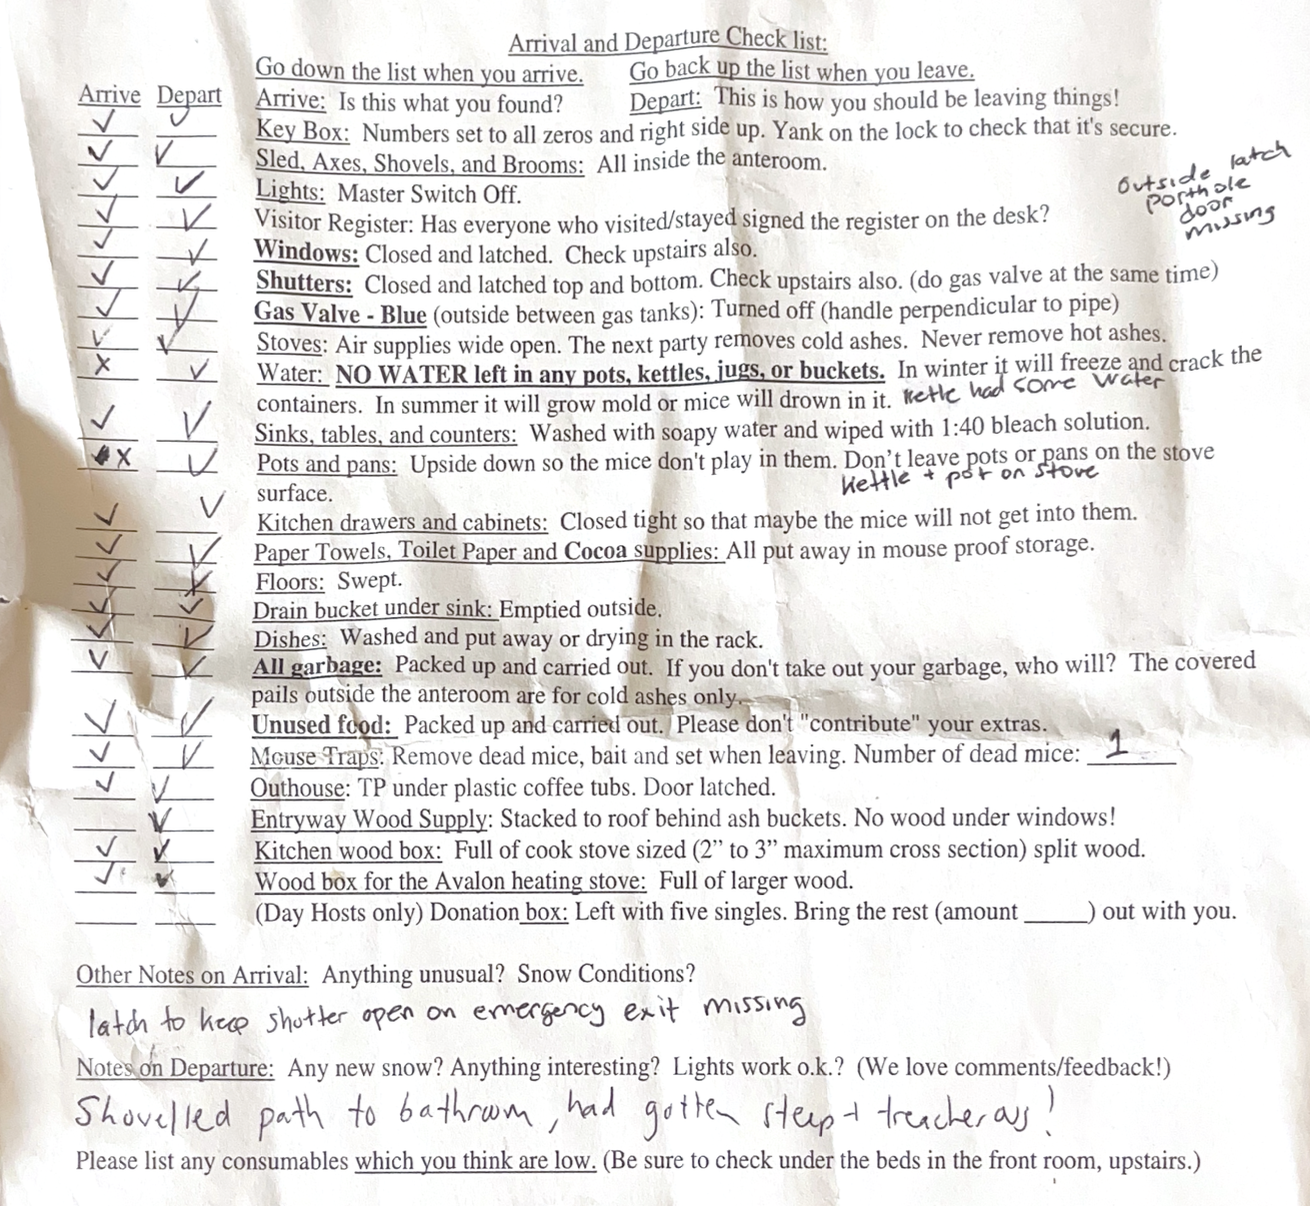 Arrival and Departure Check list:
Go down the list when you arrive. Go back up the list when you leave.
Arrive Depart Arrive: Is this what you found? Depart: This is how you should be leaving things!
✓ ✓ Key Box: Numbers set to all zeros and right side up. Yank on the lock to check that it's secure.
✓ ✓ Sled, Axes, Shovels, and Brooms: All inside the anteroom.
outside latch
porthole
door
missing
✓ ✓ Lights: Master Switch Off.
✓ ✓ Visitor Register: Has everyone who visited/stayed signed the register on the desk?
✓ ✓ Windows: Closed and latched. Check upstairs also.
✓ ✓ Shutters: Closed and latched top and bottom. Check upstairs also. (do gas valve at the same time)
✓ ✓ Gas Valve - Blue (outside between gas tanks): Turned off (handle perpendicular to pipe)
✓ ✓ Stoves: Air supplies wide open. The next party removes cold ashes. Never remove hot ashes.
x ✓ Water: NO WATER left in any pots, kettles, jugs, or buckets. In winter it will freeze and crack the
containers. In summer it will grow mold or mice will drown in it. Kettle had some water
✓ ✓ Sinks, tables, and counters: Washed with soapy water and wiped with 1:40 bleach solution.
x ✓ Pots and pans: Upside down so the mice don't play in them. Don't leave pots or pans on the stove
surface. Kettle + pot on stove
✓ ✓ Kitchen drawers and cabinets: Closed tight so that maybe the mice will not get into them.
✓ ✓ Paper Towels, Toilet Paper and Cocoa supplies: All put away in mouse proof storage.
✓ ✓ Floors: Swept.
✓ ✓ Drain bucket under sink: Emptied outside.
✓ ✓ Dishes: Washed and put away or drying in the rack.
✓ ✓ All garbage: Packed up and carried out. If you don't take out your garbage, who will? The covered
pails outside the anteroom are for cold ashes only.
✓ ✓ Unused food: Packed up and carried out. Please don't "contribute" your extras.
✓ ✓ Mouse Traps: Remove dead mice, bait and set when leaving. Number of dead mice: 1
✓ ✓ Outhouse: TP under plastic coffee tubs. Door latched.
✓ Entryway Wood Supply: Stacked to roof behind ash buckets. No wood under windows!
✓ ✓ Kitchen wood box: Full of cook stove sized (2" to 3" maximum cross section) split wood.
✓ ✓ Wood box for the Avalon heating stove: Full of larger wood.
(Day Hosts only) Donation box: Left with five singles. Bring the rest (amount _____) out with you.
Other Notes on Arrival: Anything unusual? Snow Conditions?
latch to keep shutter open on emergency exit missing
Notes on Departure: Any new snow? Anything interesting? Lights work o.k.? (We love comments/feedback!)
Shovelled path to bathroom, had gotten steep + treacherous!
Please list any consumables which you think are low. (Be sure to check under the beds in the front room, upstairs.)